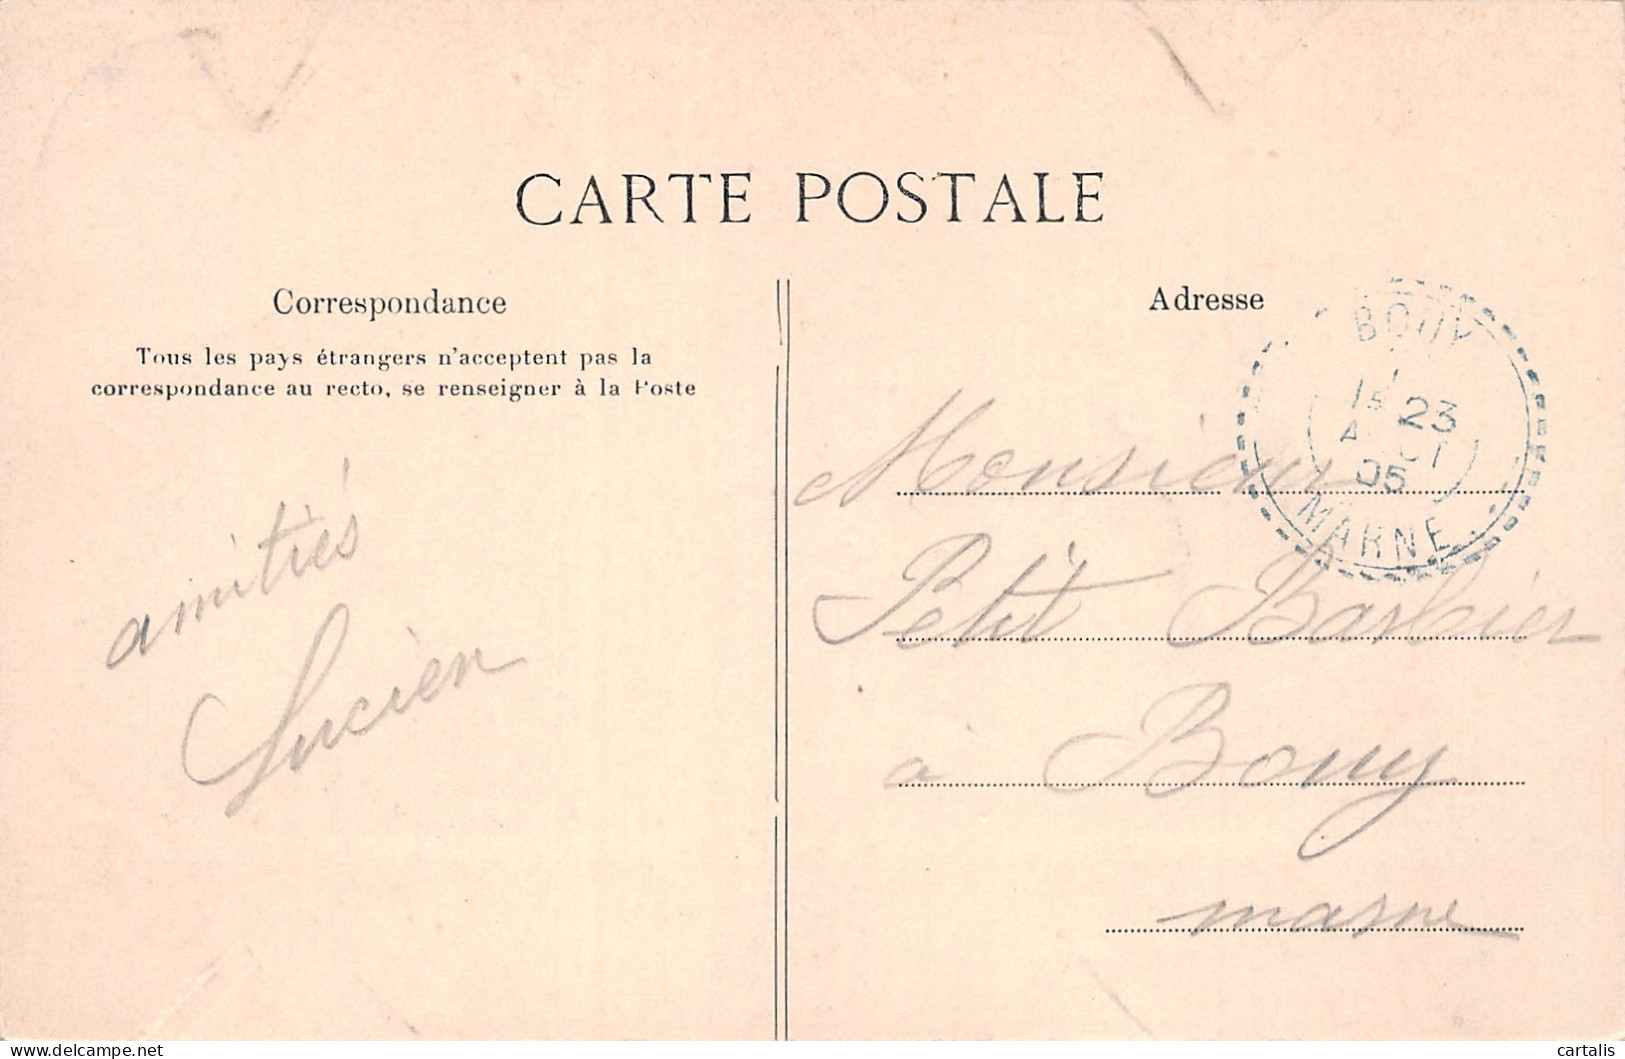 CARTE POSTALE
Correspondance
Tous les pays étrangers n'acceptent pas la
correspondance au recto, se renseigner à la Poste
amitiés
Lucien
Adresse
BOUY
15 23
AOUT
05
MARNE
Monsieur
Petit Barbier
à Bouy
marne
cartalis